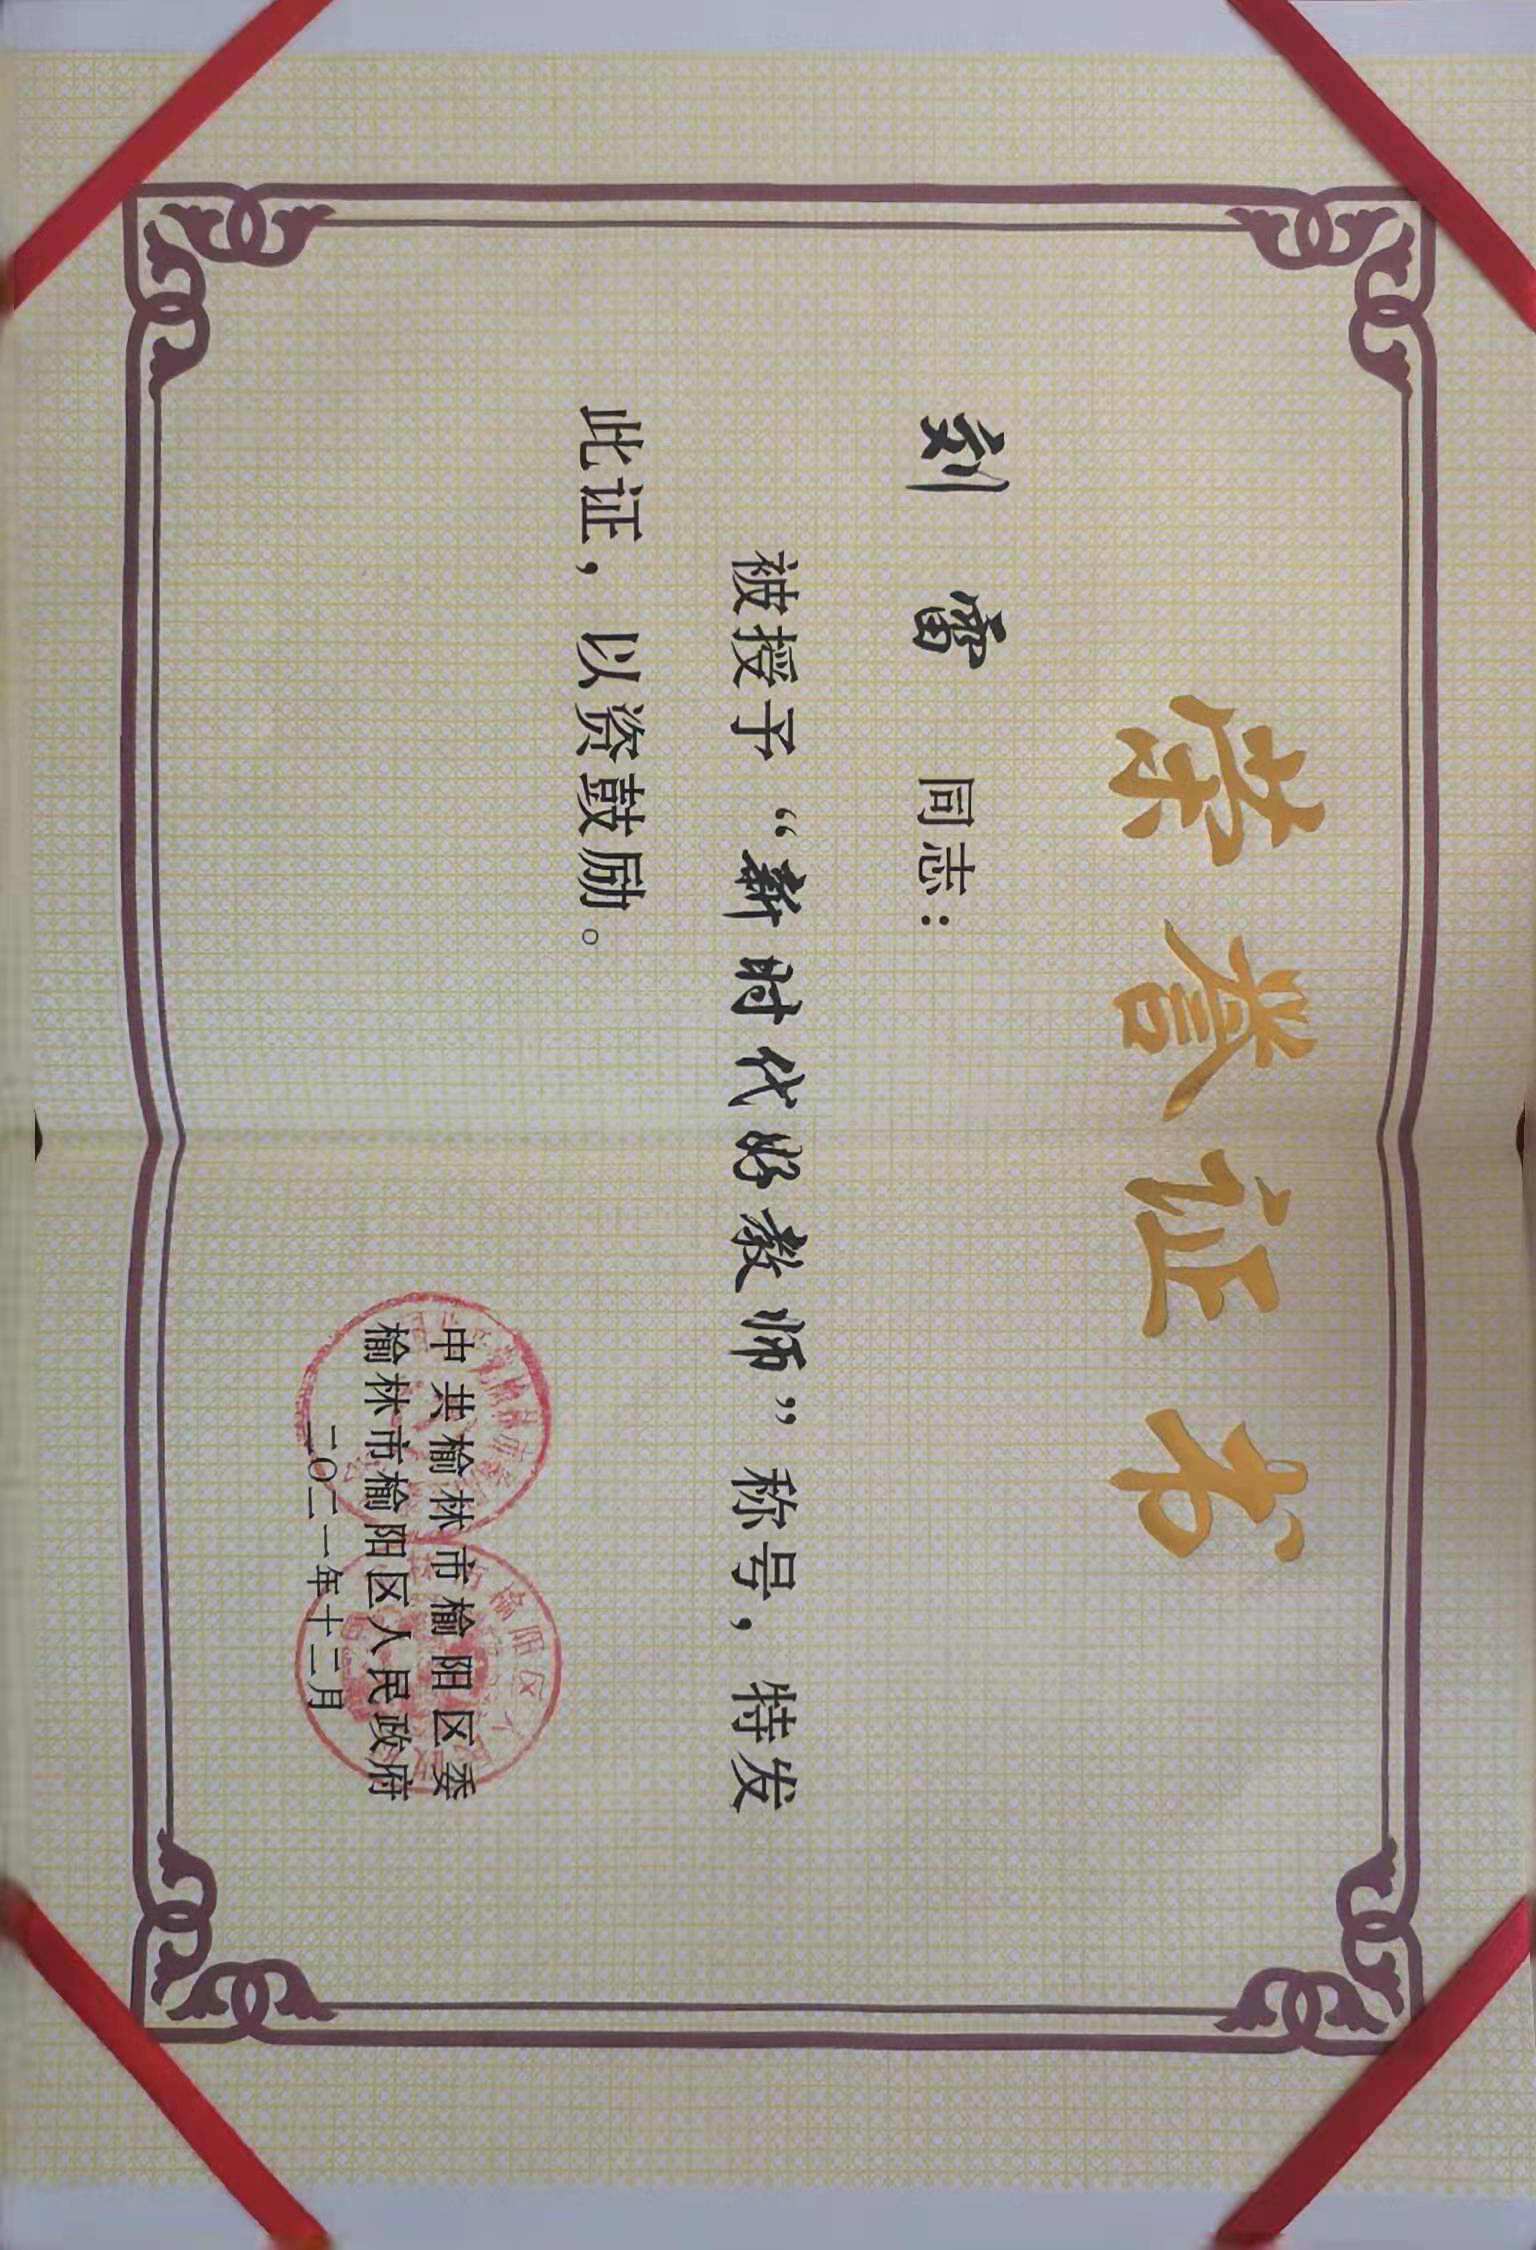 荣誉证书
刘雷 同志：
被授予“新时代好教师”称号，特发
此证，以资鼓励。
中共榆林市榆阳区委
榆林市榆阳区人民政府
二〇二一年十二月